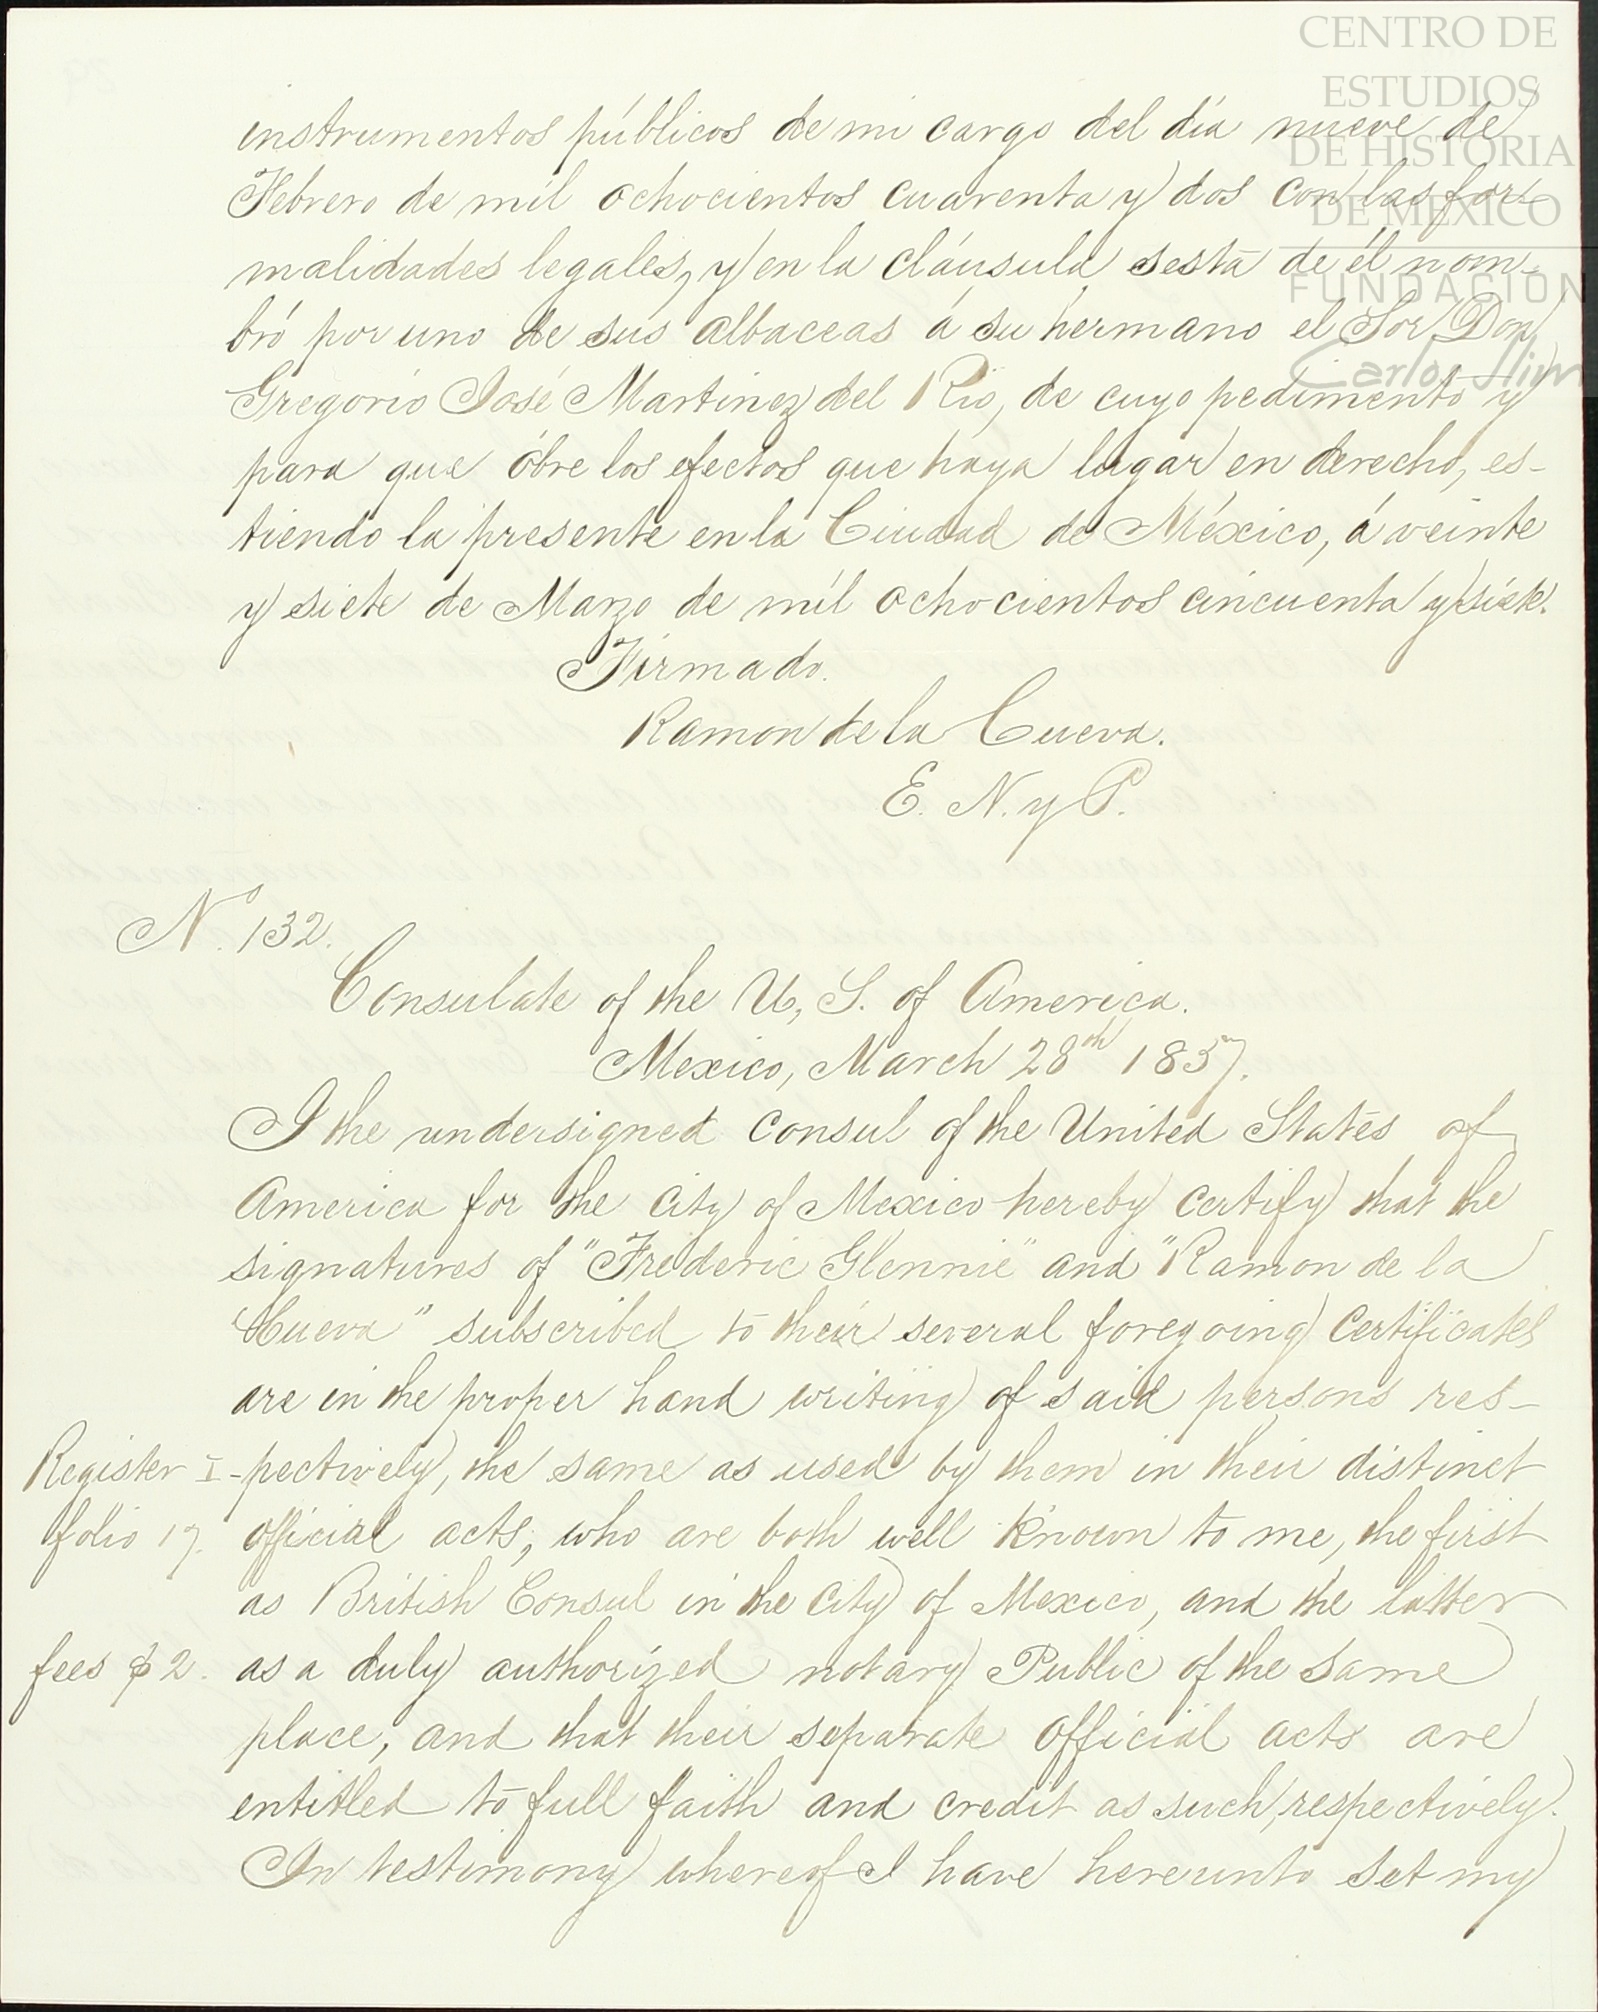 CENTRO DE
ESTUDIOS
DE HISTORIA
DE MÉXICO
FUNDACIÓN
Carlos Slim
instrumentos públicos de mi cargo del día nueve de
Febrero de mil ochocientos cuarenta y dos con las for-
malidades legales, y en la cláusula sesta de él nom-
bró por uno de sus albaceas á su hermano el Sor Don
Gregorio José Martinez del Rio, de cuyo pedimento y
para que óbre los efectos que haya lugar en derecho, es-
tiendo la presente en la Ciudad de México, á veinte
y siete de Marzo de mil ochocientos cincuenta y siete.
Firmado.
Ramon de la Cueva.
E. N. y P.
No. 132.
Consulate of the U, S. of America.
Mexico, March 28th 1857.
I the undersigned consul of the United States of
America for the City of Mexico hereby certify that the
signatures of "Frederic Glennie" and "Ramon de la
Cueva" subscribed to their several foregoing Certificates
are in the proper hand writing of said persons res-
Register I - pectively, the same as used by them in their distinct
folio 17. official acts, who are both well Known to me, the first
as British Consul in the City of Mexico, and the latter
fees $2. as a duly authorized notary Public of the same
place, and that their separate official acts are
entitled to full faith and credit as such, respectively.
In testimony whereof I have hereunto set my